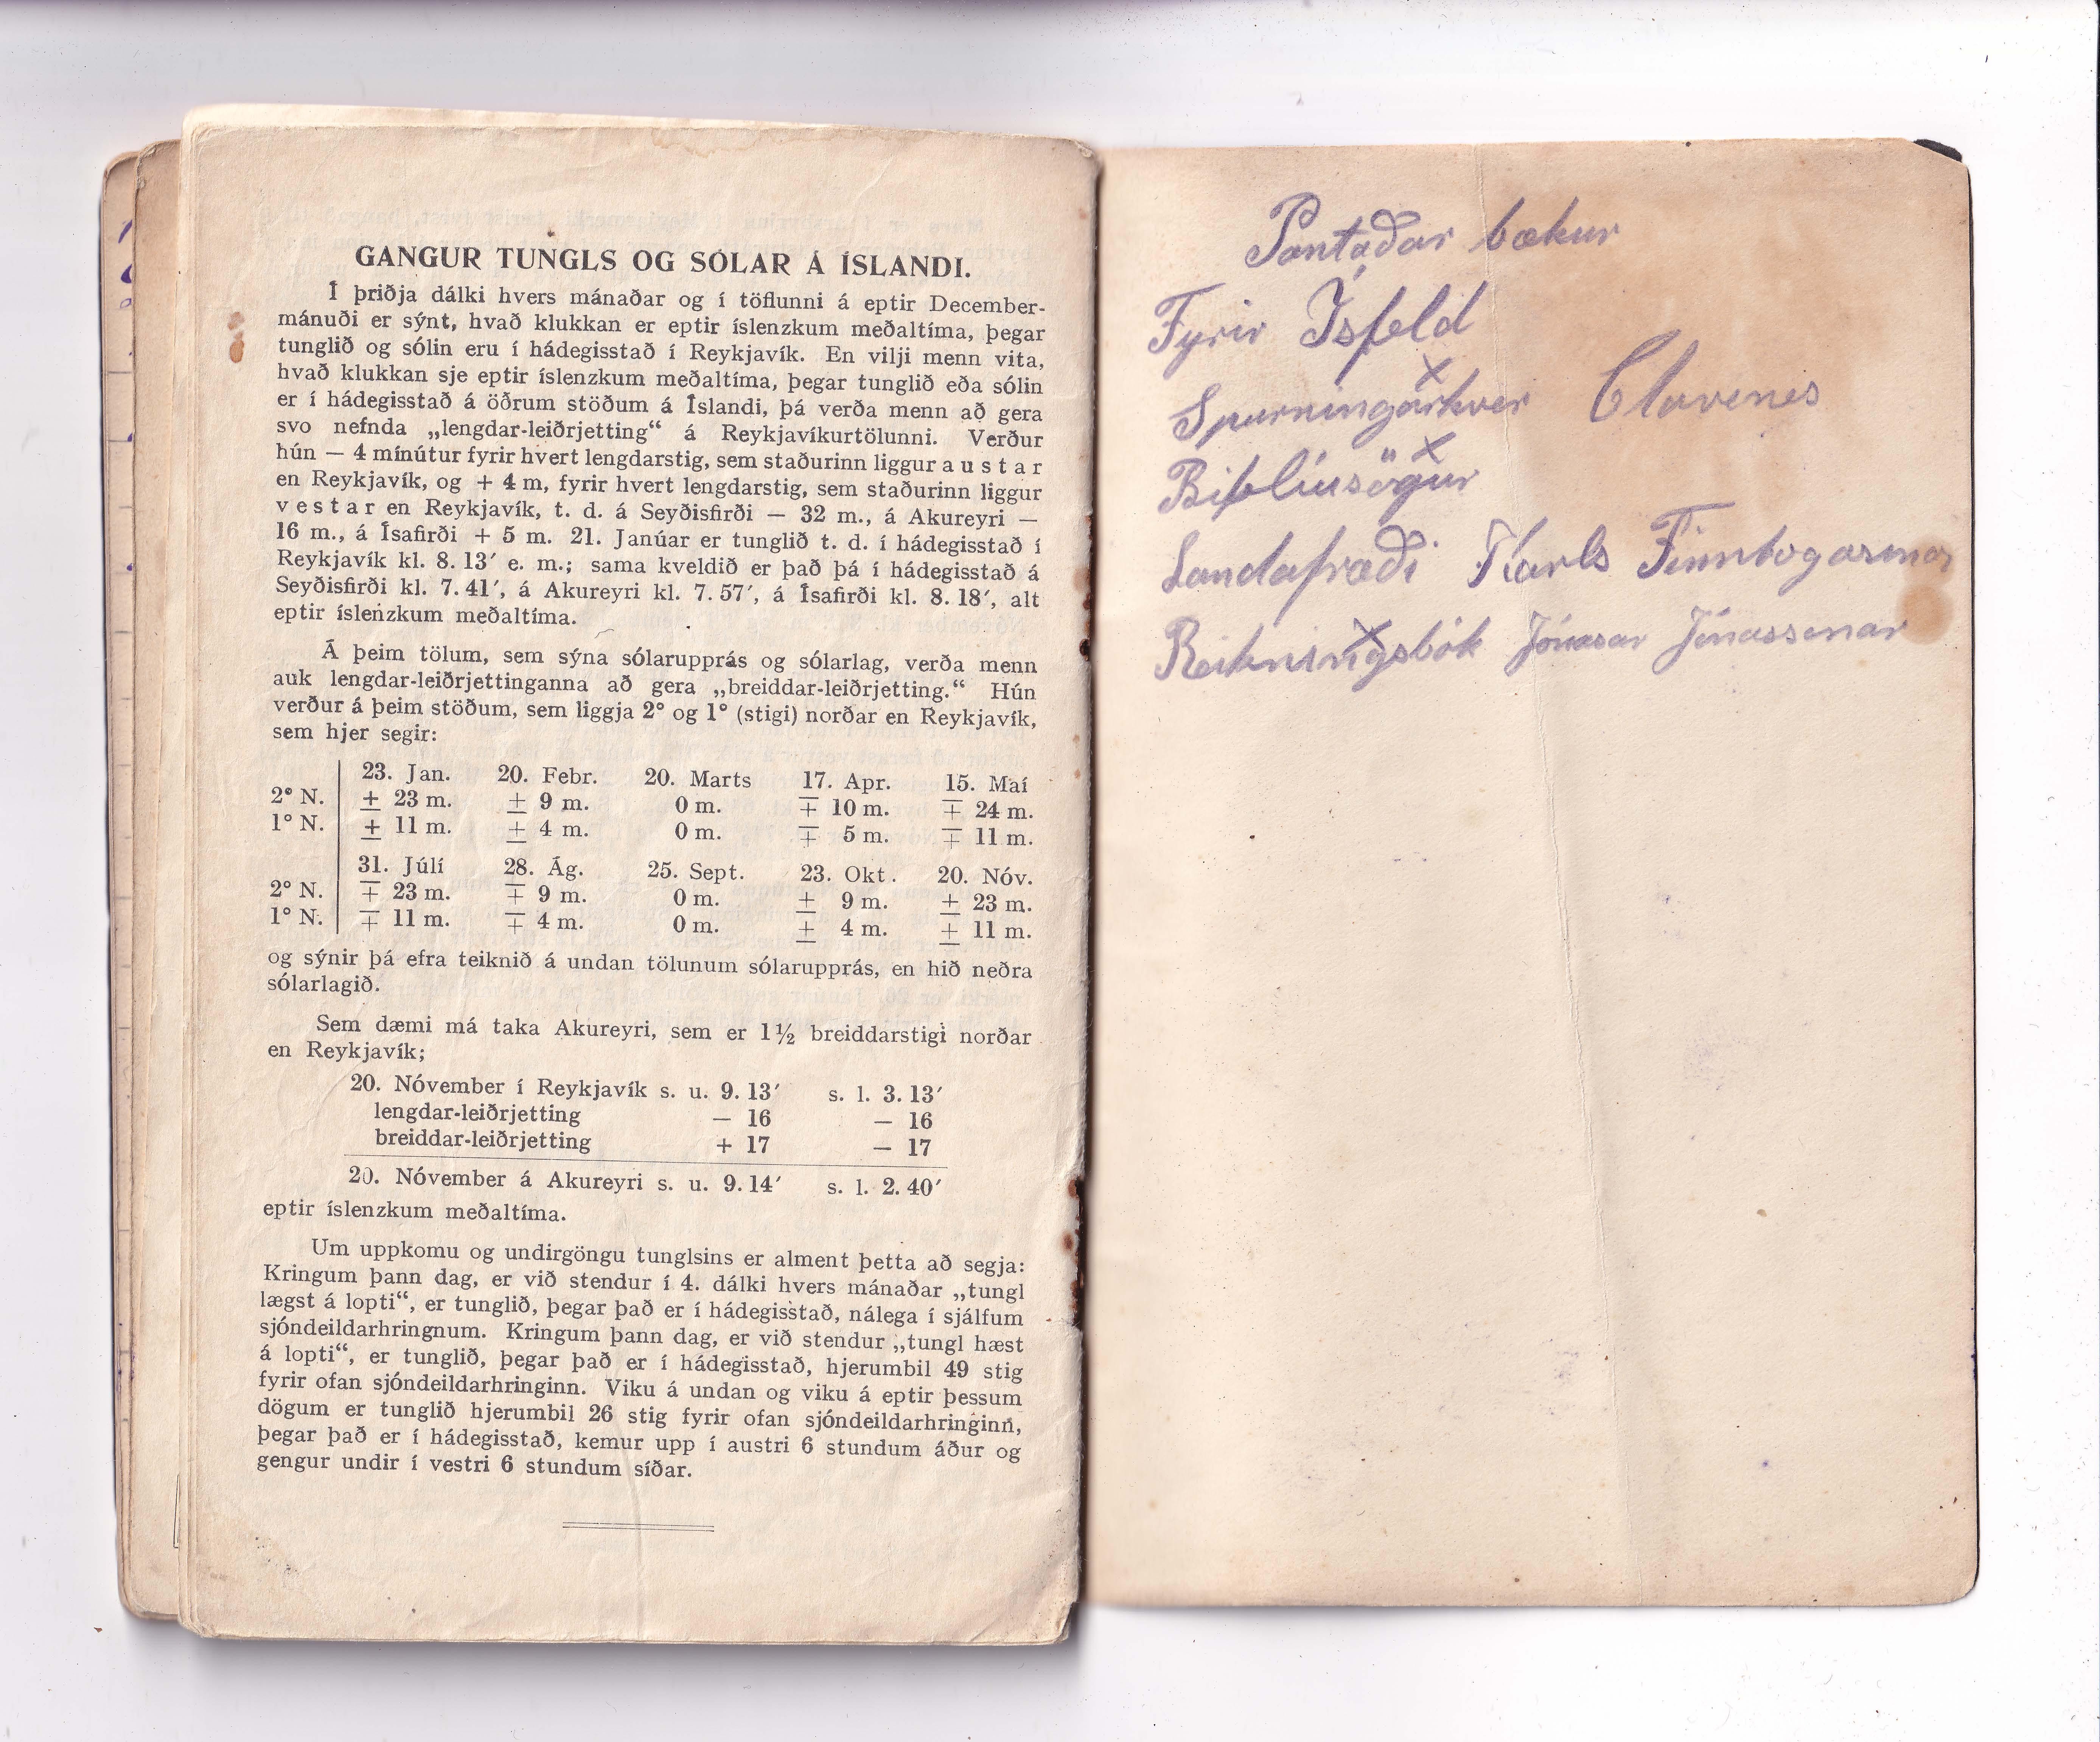 GANGUR TUNGLS OG SÓLAR Á ÍSLANDI.
Í þriðja dálki hvers mánaðar og í töflunni á eptir December-
mánuði er sýnt, hvað klukkan er eptir íslenzkum meðaltíma, þegar
tunglið og sólin eru í hádegisstað í Reykjavík. En vilji menn vita,
hvað klukkan sje eptir íslenzkum meðaltíma, þegar tunglið eða sólin
er í hádegisstað á öðrum stöðum á Íslandi, þá verða menn að gera
svo nefnda „lengdar-leiðrjetting“ á Reykjavíkurtölunni. Verður
hún — 4 mínútur fyrir hvert lengdarstig, sem staðurinn liggur austar
en Reykjavík, og + 4 m, fyrir hvert lengdarstig, sem staðurinn liggur
vestar en Reykjavík, t. d. á Seyðisfirði — 32 m., á Akureyri —
16 m., á Ísafirði + 5 m. 21. Janúar er tunglið t. d. í hádegisstað í
Reykjavík kl. 8. 13′ e. m.; sama kveldið er það þá í hádegisstað á
Seyðisfirði kl. 7. 41′, á Akureyri kl. 7. 57′, á Ísafirði kl. 8. 18′, alt
eptir íslenzkum meðaltíma.
Á þeim tölum, sem sýna sólarupprás og sólarlag, verða menn
auk lengdar-leiðrjettinganna að gera „breiddar-leiðrjetting.“ Hún
verður á þeim stöðum, sem liggja 2° og 1° (stigi) norðar en Reykjavík,
sem hjer segir:
23. Jan. 20. Febr. 20. Marts 17. Apr. 15. Maí
2° N. ± 23 m. ± 9 m. 0 m. ∓ 10 m. ∓ 24 m.
1° N. ± 11 m. ± 4 m. 0 m. ∓ 5 m. ∓ 11 m.
31. Júlí 28. Ág. 25. Sept. 23. Okt. 20. Nóv.
2° N. ∓ 23 m. ∓ 9 m. 0 m. ± 9 m. ± 23 m.
1° N. ∓ 11 m. ∓ 4 m. 0 m. ± 4 m. ± 11 m.
og sýnir þá efra teiknið á undan tölunum sólarupprás, en hið neðra
sólarlagið.
Sem dæmi má taka Akureyri, sem er 1½ breiddarstigi norðar
en Reykjavík;
20. Nóvember í Reykjavík s. u. 9. 13′ s. l. 3. 13′
lengdar-leiðrjetting — 16 — 16
breiddar-leiðrjetting + 17 — 17
20. Nóvember á Akureyri s. u. 9. 14′ s. l. 2. 40′
eptir íslenzkum meðaltíma.
Um uppkomu og undirgöngu tunglsins er alment þetta að segja:
Kringum þann dag, er við stendur í 4. dálki hvers mánaðar „tungl
lægst á lopti“, er tunglið, þegar það er í hádegisstað, nálega í sjálfum
sjóndeildarhringnum. Kringum þann dag, er við stendur „tungl hæst
á lopti“, er tunglið, þegar það er í hádegisstað, hjerumbil 49 stig
fyrir ofan sjóndeildarhringinn. Viku á undan og viku á eptir þessum
dögum er tunglið hjerumbil 26 stig fyrir ofan sjóndeildarhringinn,
þegar það er í hádegisstað, kemur upp í austri 6 stundum áður og
gengur undir í vestri 6 stundum síðar.
Pantaðar bækur
Fyrir Ísfeld
Spurningarkver Clavenes
Biblíusögur
Landafræði Karls Finnbogasonar
Reikningsbók Jónasar Jónassonar